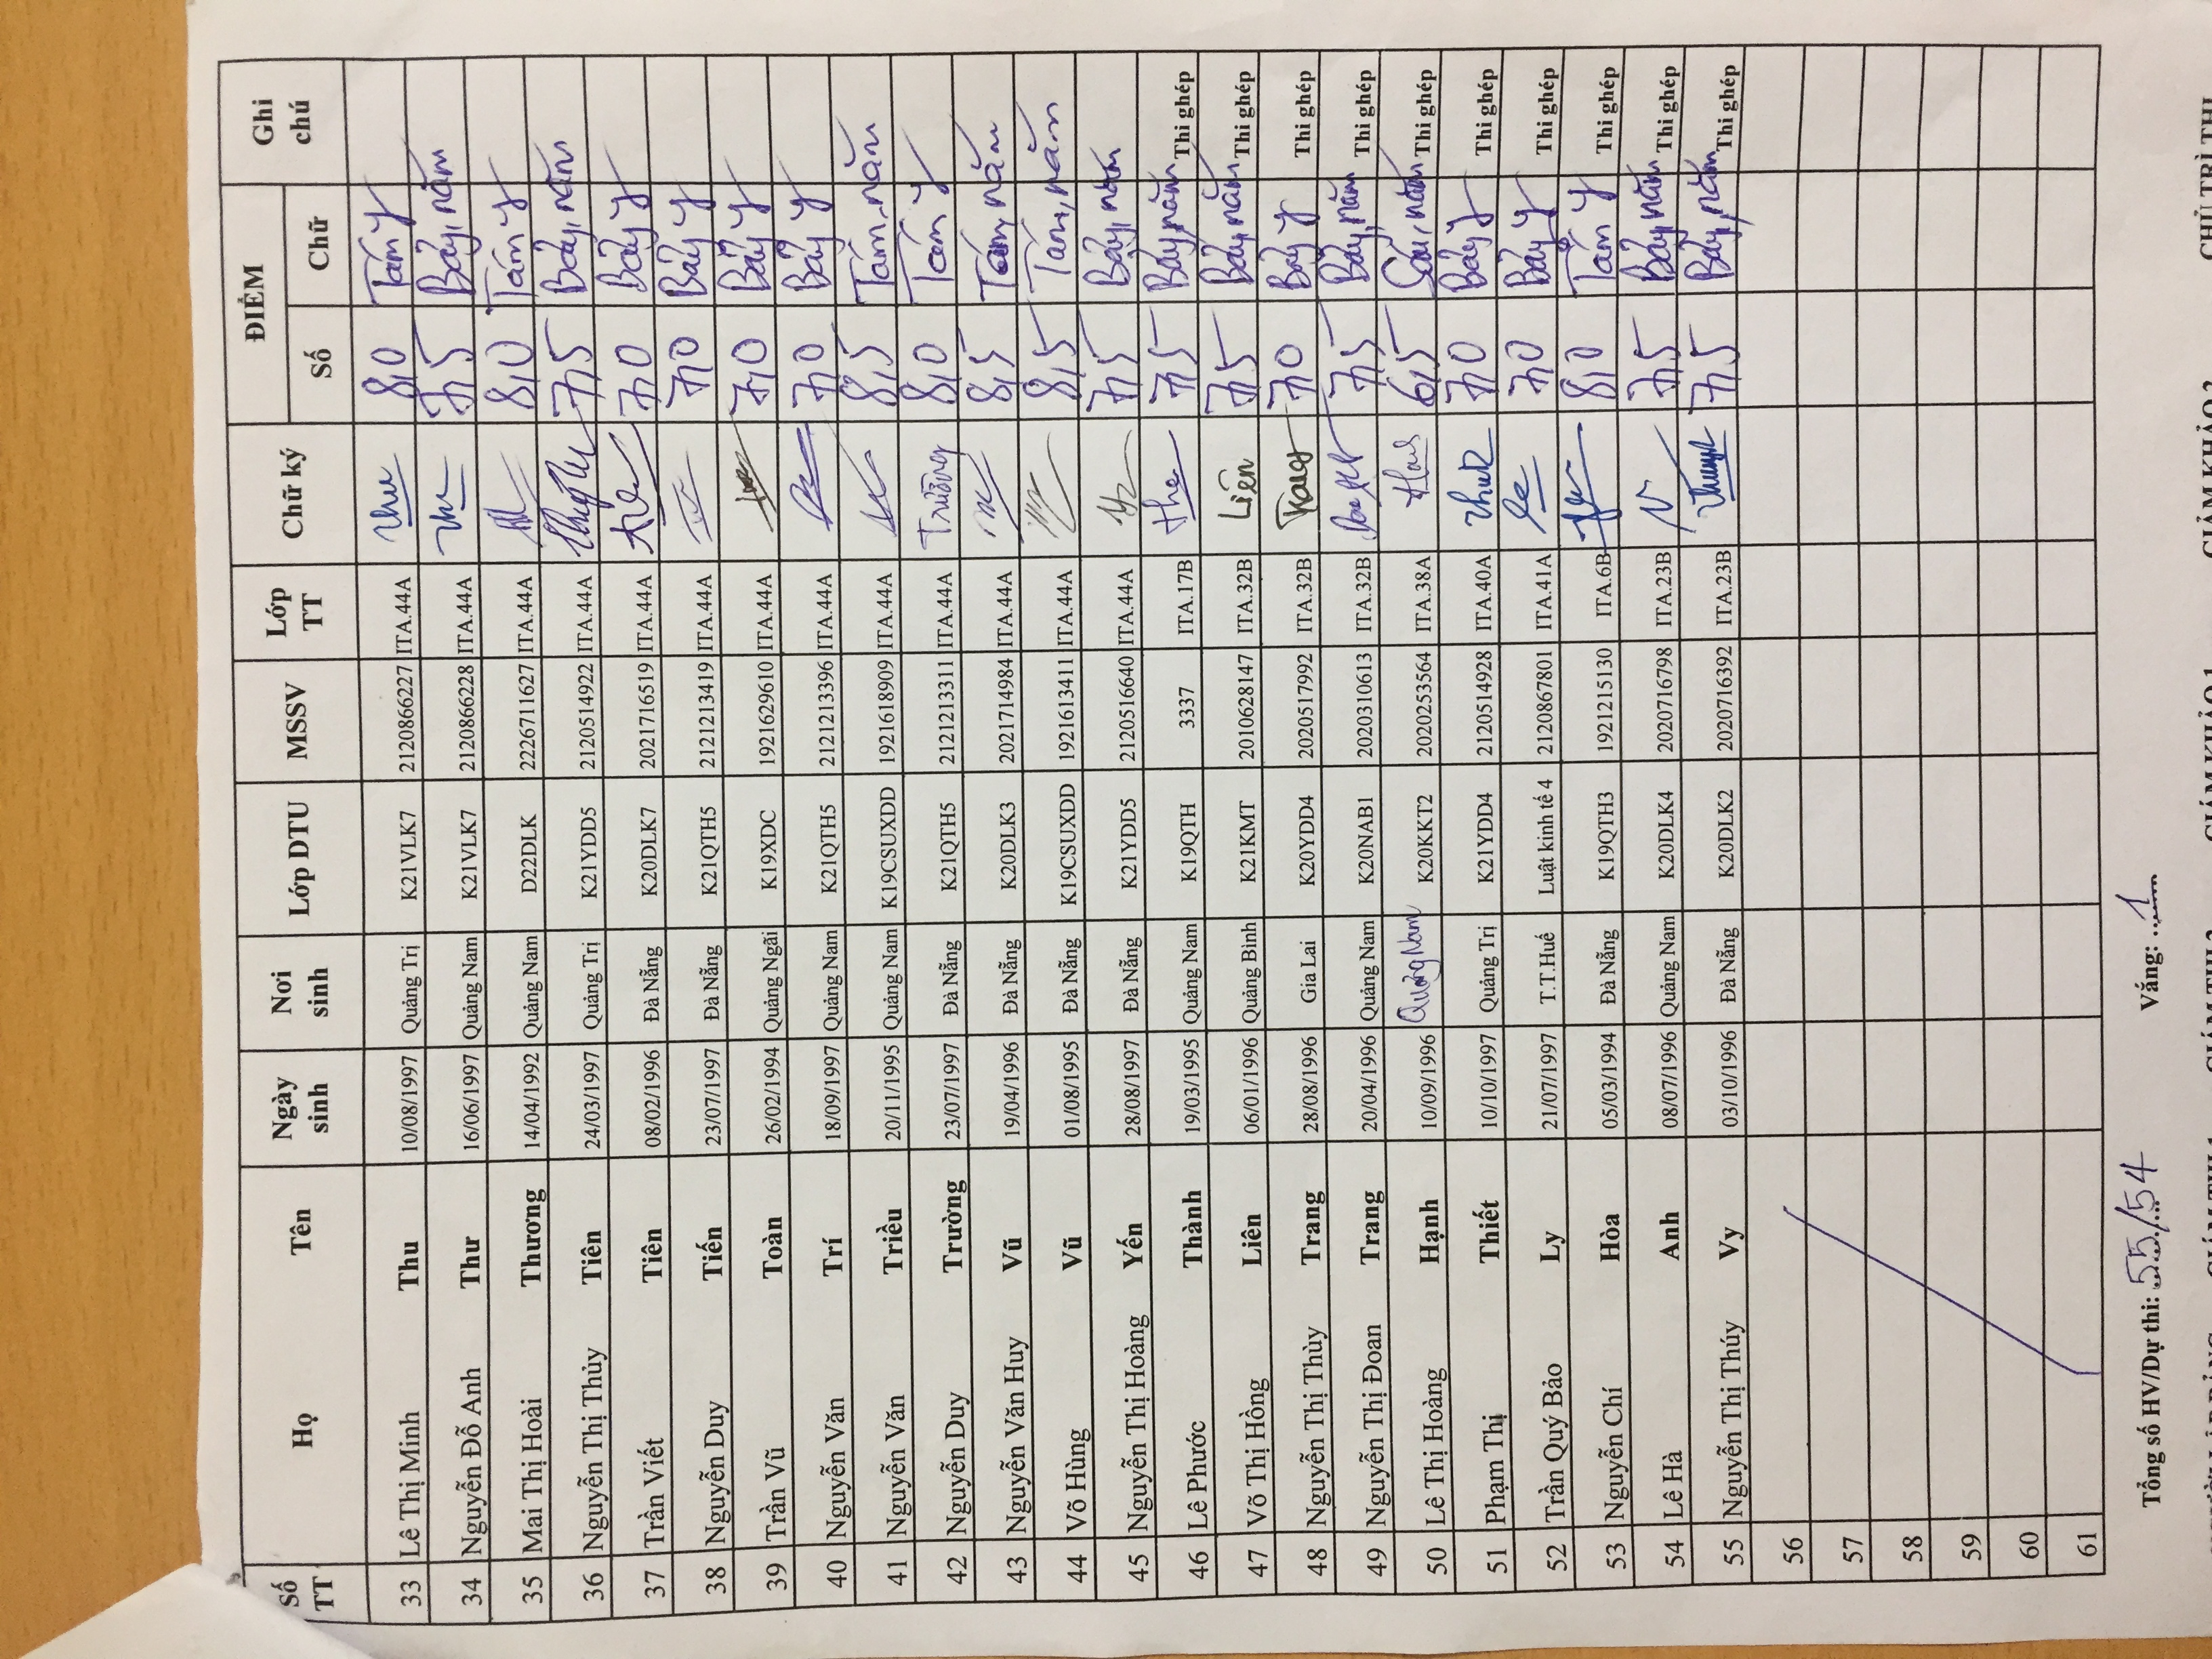 Số TT Họ Tên Ngày sinh Nơi sinh Lớp DTU MSSV Lớp TT Chữ ký ĐIỂM Ghi chú
Số Chữ
33 Lê Thị Minh Thu 10/08/1997 Quảng Trị K21VLK7 2120866227 ITA.44A Thu 8,0 Tám y
34 Nguyễn Đỗ Anh Thư 16/06/1997 Quảng Nam K21VLK7 2120866228 ITA.44A 7,5 Bảy, năm
35 Mai Thị Hoài Thương 14/04/1992 Quảng Nam D22DLK 2226711627 ITA.44A 8,0 Tám y
36 Nguyễn Thị Thủy Tiên 24/03/1997 Quảng Trị K21YDD5 2120514922 ITA.44A 7,5 Bảy, năm
37 Trần Viết Tiên 08/02/1996 Đà Nẵng K20DLK7 2021716519 ITA.44A 7,0 Bảy y
38 Nguyễn Duy Tiến 23/07/1997 Đà Nẵng K21QTH5 2121213419 ITA.44A 7,0 Bảy y
39 Trần Vũ Toàn 26/02/1994 Quảng Ngãi K19XDC 1921629610 ITA.44A 7,0 Bảy y
40 Nguyễn Văn Trí 18/09/1997 Quảng Nam K21QTH5 2121213396 ITA.44A 7,0 Bảy y
41 Nguyễn Văn Triều 20/11/1995 Quảng Nam K19CSUXDD 1921618909 ITA.44A 8,5 Tám, năm
42 Nguyễn Duy Trường 23/07/1997 Đà Nẵng K21QTH5 2121213311 ITA.44A Trường 8,0 Tám y
43 Nguyễn Văn Huy Vũ 19/04/1996 Đà Nẵng K20DLK3 2021714984 ITA.44A 8,5 Tám, năm
44 Võ Hùng Vũ 01/08/1995 Đà Nẵng K19CSUXDD 1921613411 ITA.44A 8,5 Tám, năm
45 Nguyễn Thị Hoàng Yến 28/08/1997 Đà Nẵng K21YDD5 2120516640 ITA.44A 7,5 Bảy, năm
46 Lê Phước Thành 19/03/1995 Quảng Nam K19QTH 3337 ITA.17B 7,5 Bảy, năm Thi ghép
47 Võ Thị Hồng Liên 06/01/1996 Quảng Bình K21KMT 2010628147 ITA.32B Liên 7,5 Bảy, năm Thi ghép
48 Nguyễn Thị Thùy Trang 28/08/1996 Gia Lai K20YDD4 2020517992 ITA.32B Trang 7,0 Bảy y Thi ghép
49 Nguyễn Thị Đoan Trang 20/04/1996 Quảng Nam K20NAB1 2020310613 ITA.32B 7,5 Bảy, năm Thi ghép
50 Lê Thị Hoàng Hạnh 10/09/1996 Quảng Nam K20KKT2 2020253564 ITA.38A 6,5 Sáu, năm Thi ghép
51 Phạm Thị Thiết 10/10/1997 Quảng Trị K21YDD4 2120514928 ITA.40A 7,0 Bảy y Thi ghép
52 Trần Quý Bảo Ly 21/07/1997 T.T.Huế Luật kinh tế 4 2120867801 ITA.41A 7,0 Bảy y Thi ghép
53 Nguyễn Chí Hòa 05/03/1994 Đà Nẵng K19QTH3 1921215130 ITA.6B 8,0 Tám y Thi ghép
54 Lê Hà Anh 08/07/1996 Quảng Nam K20DLK4 2020716798 ITA.23B 7,5 Bảy, năm Thi ghép
55 Nguyễn Thị Thúy Vy 03/10/1996 Đà Nẵng K20DLK2 2020716392 ITA.23B 7,5 Bảy, năm Thi ghép
56
57
58
59
60
61
Tổng số HV/Dự thi: 55/54 Vắng: 1